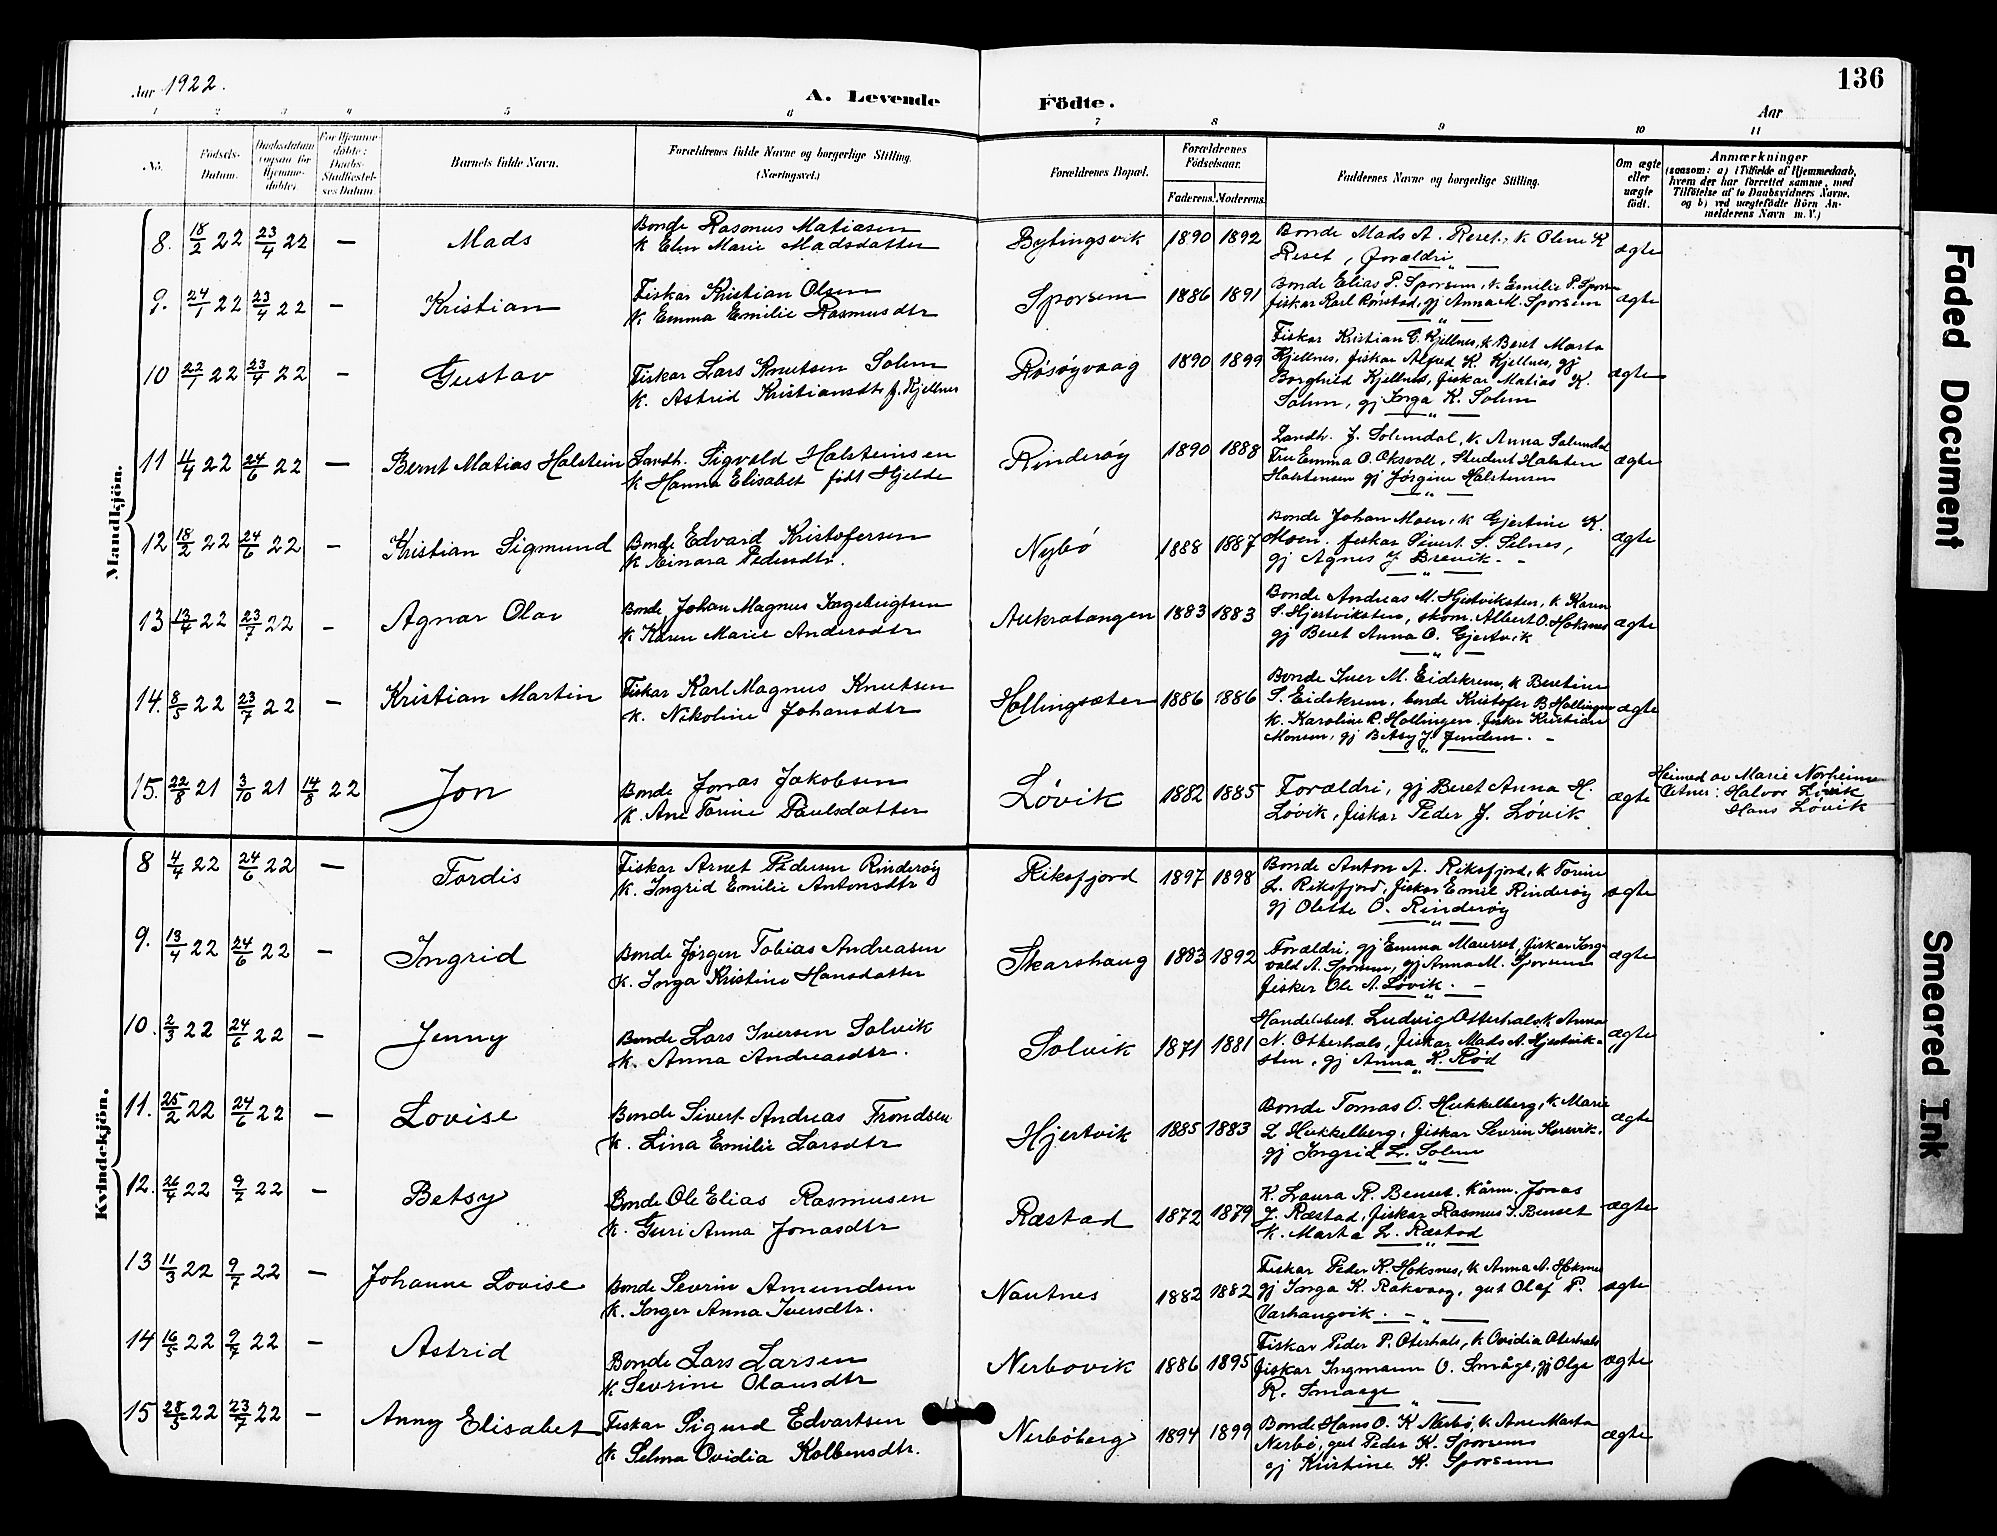 Aar 1922.
A. Levende Födte.
136
Aar
1 2 3 4 5 6 7 8 9 10 11
No.
Födsels-Datum.
Daabsdatum (ogsaa for Hjemme-döbte).
For Hjemme-döbte: Daabs-Stadfæstelses Datum.
Barnets fulde Navn.
Forældrenes fulde Navne og borgerlige Stilling. (Næringsvei.)
Forældrenes Bopæl.
Forældrenes Födselsaar.
Faderens. Moderens.
Faddernes Navne og borgerlige Stilling.
Om ægte eller uægte födt.
Anmærkninger
(saasom: a) i Tilfælde af Hjemmedaab,
hvem der har forrettet samme, med
Tilföielse af to Daabsvidners Navne,
og b) ved uægtefödte Börn An-
melderens Navn m. V.)
Mandkjön.
8. 18/2 22 23/4 22 — Mads
Bonde Rasmus Matiasen
K Elen Marie Madsdatter
Bylingsvik 1890 1892
Bonde Mads A. Reset, K Oline K
Reset, forældri
ægte
9. 24/1 22 23/4 22 — Kristian
Fiskar Kristian Olsen
K. Emma Emilie Rasmusdtr
Sporsem 1886 1891
Bonde Elias P. Sporsem, K Emilie P. Sporsem
fiskar Karl Rønstad, gj Anna M. Sporsem
ægte
10 22/1 22 23/4 22 — Gustav
Fiskar Lars Knutsen Solem
K. Astrid Kristiansdtr f. Kjellnes
Røsøgvaag 1890 1899
Fiskar Kristian C. Kjellnes, K Beret Marta
Kjellnes, fiskar Alfred K. Kjellnes, gj
Borghild Kjellnes, fiskar Matias K.
Solem, gj Inga K. Solem
ægte
11 11/4 22 24/6 22 — Bernt Matias Halstein
Landh. Sigvald Halsteinsen
K Hanna Elisabet født Hjelde
Rinderøy 1890 1888
Landh. J. Solemdal, K Anna Solemdal
Fru Emma O. Oksvoll, Student Halsten
Halstensen gj Jørgine Halstensen
ægte
12 18/2 22 24/6 22 — Kristian Sigmund
Bonde Edvard Kristofersen
K Einara Pedersdtr.
Nybø 1888 1887
Bonde Johan Moen, K Gjertine K.
Moen. fiskar Sivert S. Selnes,
gj Agnes J Brevik.
ægte
13 13/4 22 23/7 22 — Agnar Olav
Bonde Johan Magnus Ingebrigtsen
K Karen Marie Andersdtr
Aukratangen 1883 1883
Bonde Andreas M. Hjertviksten, K Karen
S. Hjertviksten, skom. Albert O. Hoksnes
gj Beret Anna O. Gjertvik
ægte
14. 8/5 22 23/7 22 — Kristian Martin
Fiskar Karl Magnus Knutsen
K. Nikoline Johansdtr
Hollingsæter 1886 1886
Bonde Iver M. Eidskrem, K Beretine
S. Eidskrem, bonde Kristofer B Hollingen
K. Karoline R. Hollingen. fiskar Kristian
Monsen, gj Betsy J. Jendem.
ægte
15. 22/8 21 3/10 21 14/8 22 Jon
Bonde Jonas Jakobsen
K. Ane Torine Paulsdatter
Løvik 1882 1885
Forældri, gj Beret Anna H.
Løvik, fiskar Peder J. Løvik
ægte
Heimed av Marie Norheim
Vitner: Halvor Løvik
Hans Løvik
Kvindekjön.
8 4/4 22 24/6 22 — Tordis
Fiskar Arnet Pedersen Rinderøy
K. Ingrid Emilie Antonsdtr
Riksfjord 1897 1898
Bonde Anton A. Riksfjord, K Torine
L. Riksfjord, fiskar Emil Rinderøy
gj Olette O. Rinderøy
ægte
9. 13/4 22 24/6 22 — Ingrid
Bonde Jørgen Tobias Andreasen
K. Inga Kristine Hansdatter
Skarshaug 1883 1892
Forældri, gj Emma Mausset, fiskar Torg-
vald A. Sporsem, gj Anna M. Sporsem
fisker Ole A. Løvik.
ægte
10. 2/3 22 24/6 22 — Jenny
Bonde Lars Iversen Solvik
K. Anna Andreasdtr.
Solvik 1871 1881
Handelsbest. Ludvig Otterhals, K Anna
N. Otterhals, fiskar Mads A. Hjertvik-
sten, gj Anna K. Rød
ægte
11. 25/2 22 24/6 22 — Lovise
Bonde Sivert Andreas Trondsen
K. Lina Emilie Larsdtr
Hjertvik 1885 1883
Bonde Tomas O. Hukkelberg, K Marie
L Hukkelberg, fiskar Sevrin Korsvik,
gj Ingrid L. Solem
ægte
12. 26/4 22 9/7 22 — Betsy
Bonde Ole Elias Rasmusen
K. Guri Anna Jonasdtr
Ræstad 1872 1879
K. Laura R. Benset. Kårm. Jonas
J. Ræstad, fiskar Rasmus J. Benset
K. Marta L. Ræstad
ægte
13 11/3 22 9/7 22 — Johanne Lovise
Bonde Sevrin Amundsen
K. Inger Anna Iversdtr.
Nautnes 1882 1882
Fiskar Peder K. Hoksnes, K Anna A. Hoksnes
gj Inga K. Rakvaag, gut Olaf P.
Varhaugvik.
ægte
14 16/5 22 9/7 22 — Astrid
Bonde Lars Larsen
K Sevrine Olausdtr
Nerbovik 1886 1895
Fiskar Peder P. Oterhals, K Ovidia Oterhals
fiskar Ingmann O. Småge, gj Olga
R. Smaage
ægte
15 28/5 22 23/7 22 — Anny Elisabet
Fiskar Sigurd Edvartsen
K Selma Ovidia Kolbensdtr.
Nerbøberg 1894 1899
Bonde Hans O. K Nerbø, K Ane Marta
Nerbø, gut Peder K. Sporsem
gj Kristine K. Sporsem
ægte
Faded Document
Smeared Ink